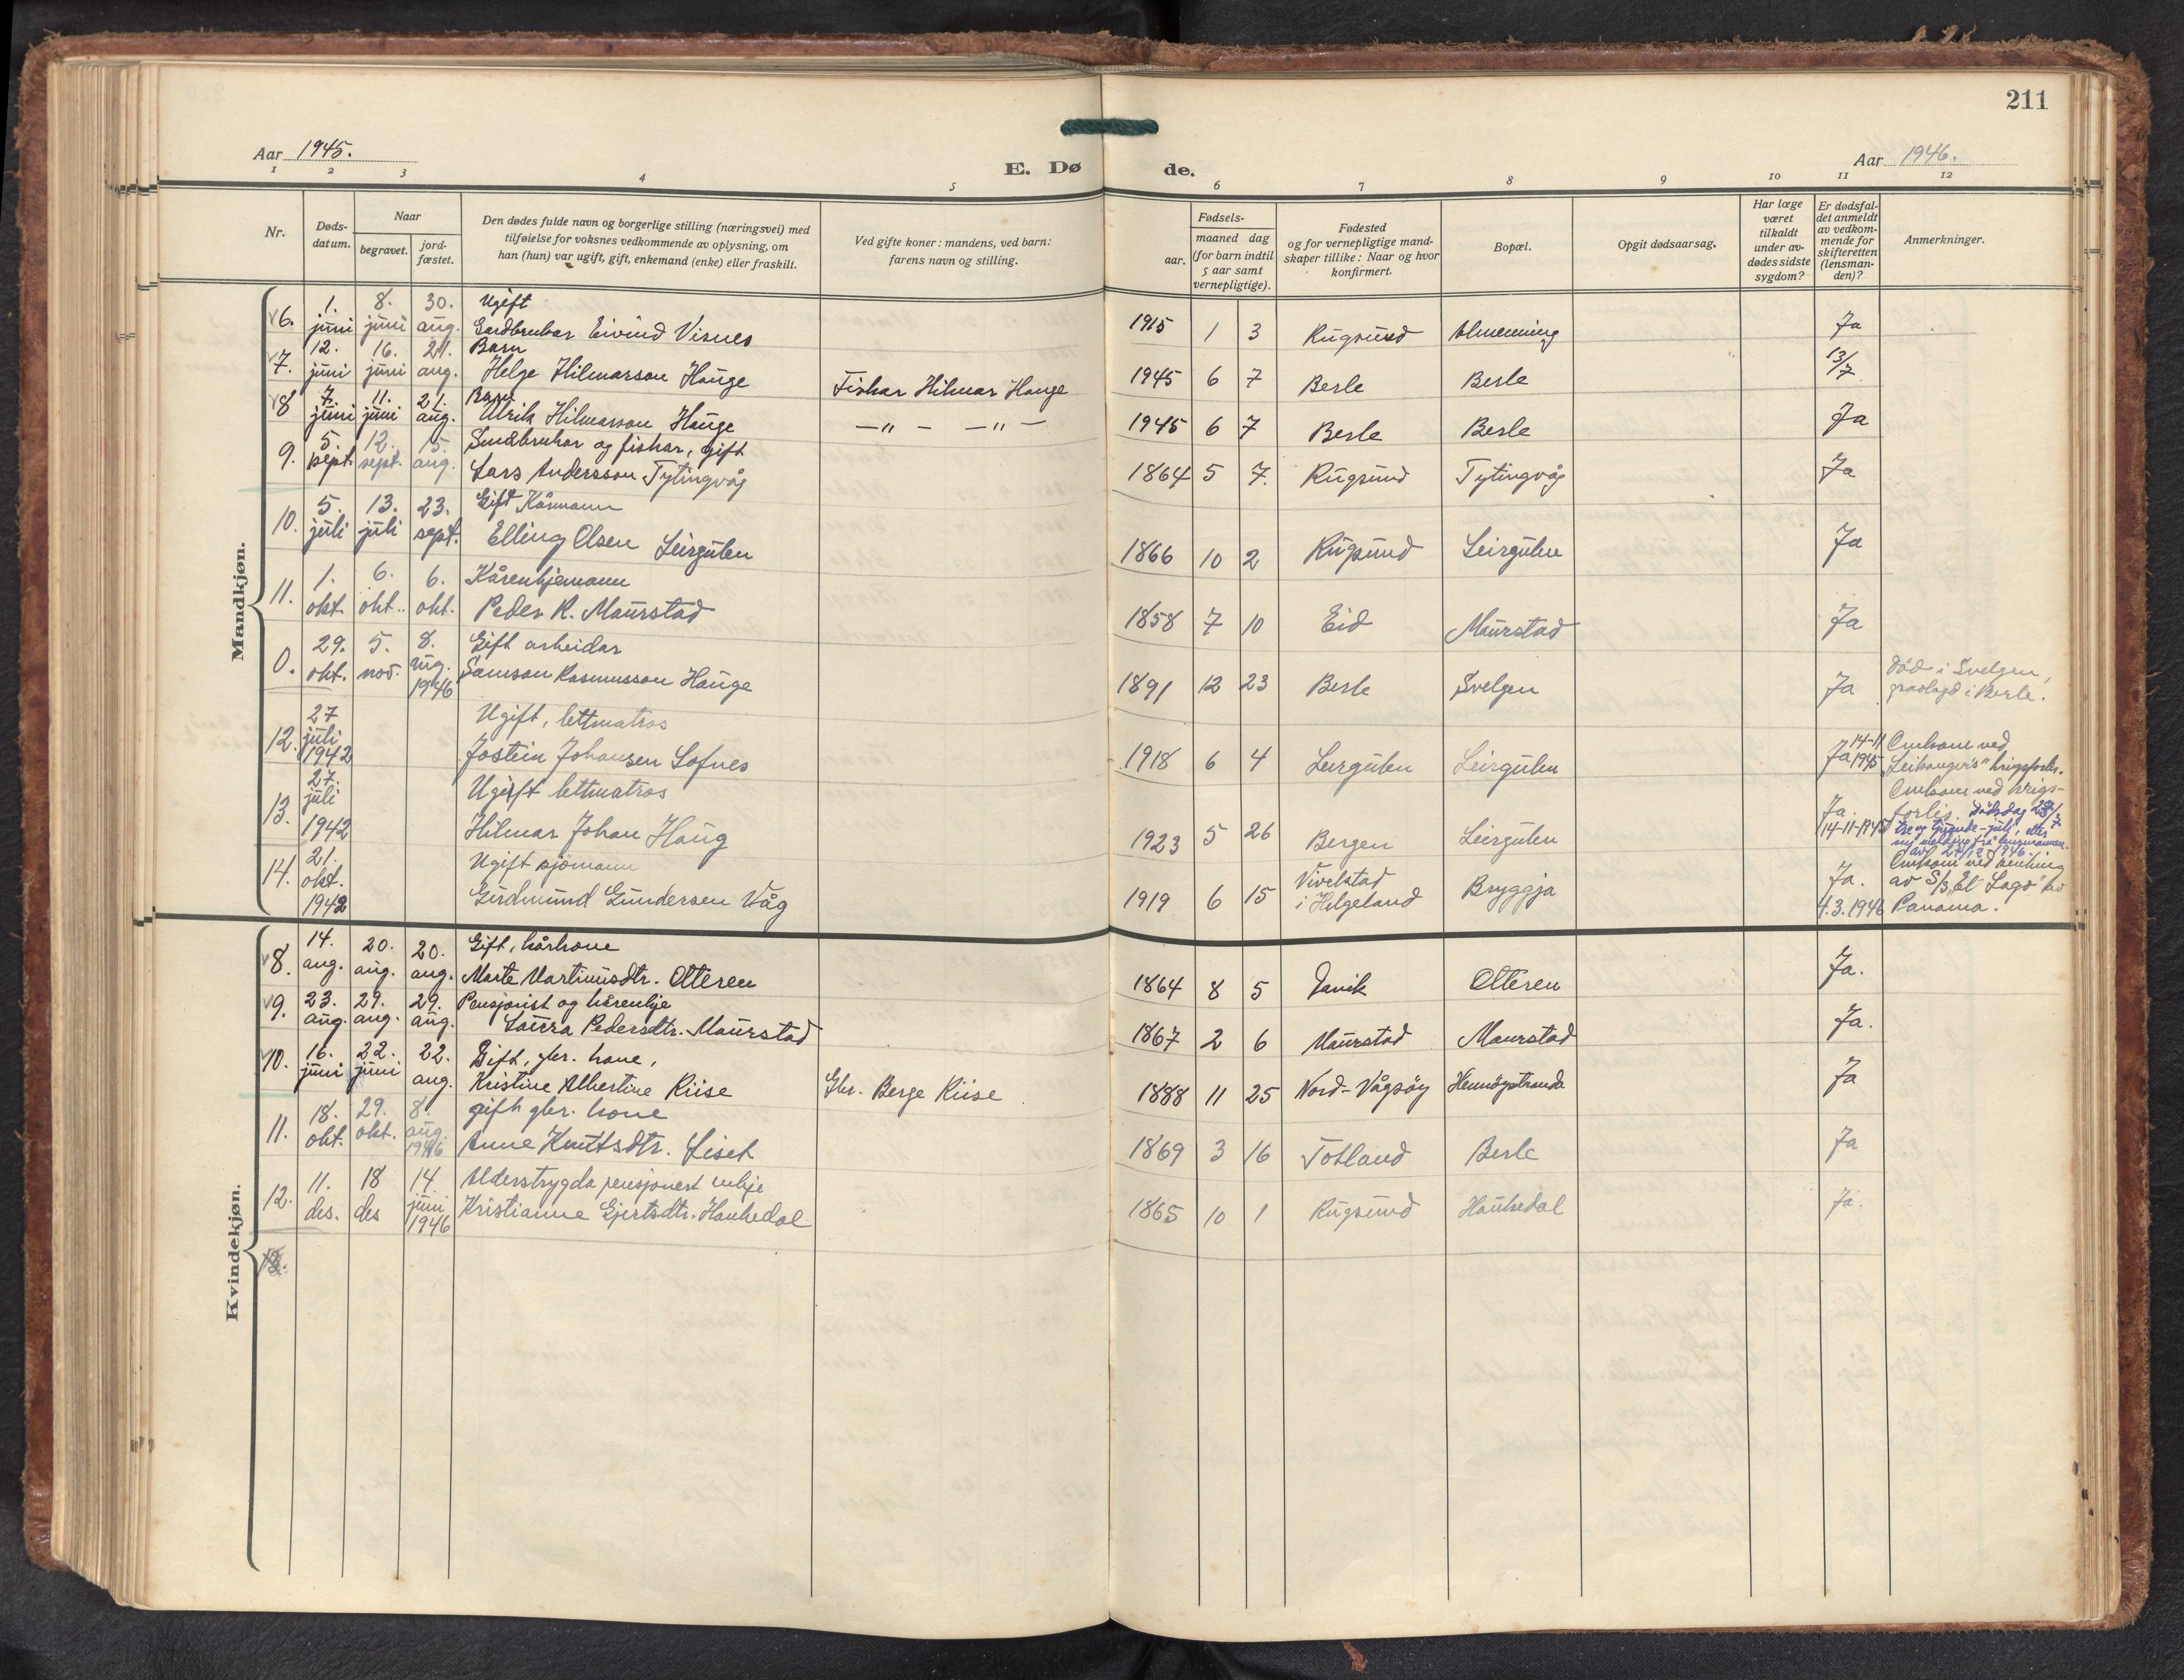 211
Aar 1945.
E. Dø de.
Aar 1946.
1 2 3 4 5 6 7 8 9 10 11 12
Nr.
Døds-
datum.
Naar
begravet.
jord-
fæstet.
Den dødes fulde navn og borgerlige stilling (næringsvei) med
tilføielse for voksnes vedkommende av oplysning, om
han (hun) var ugift, gift, enkemand (enke) eller fraskilt.
Ved gifte koner: mandens, ved barn:
farens navn og stilling.
Fødsels-
aar.
maaned dag
(for barn indtil
5 aar samt
vernepligtige).
Fødested
og for vernepligtige mand-
skaper tillike: Naar og hvor
konfirmert.
Bopæl.
Opgit dødsaarsag.
Har læge
været
tilkaldt
under av-
dødes sidste
sygdom?
Er dødsfal-
det anmeldt
av vedkom-
mende for
skifteretten
(lensman-
den)?
Anmerkninger.
Mandkjøn.
1. 8. 30. Ugift
6. juni juni aug. Gardbrukar Eivind Visnes 1915 1 3 Rugsund Almenning Ja
12. 16. 21. Barn
7. juni juni aug. Helge Hilmarson Hauge Fiskar Hilmar Hauge 1945 6 7 Berle Berle 13/7
7. 11. 21. Barn
8 juni juni aug. Ulrik Hilmarson Hauge —"— —"— 1945 6 7 Berle Berle Ja
5. 12. 15. Småbrukar og fiskar, gift
9. sept. sept. aug. Lars Andersson Tytingvåg 1864 5 7. Rugsund Tytingvåg Ja
5. 13. 23. Gift Kårmann
10. juli juli sept. Elling Olsen Leirgulen 1866 10 2 Rugsund Leirgulen Ja
1. 6. 6. Kårenkjemann
11. okt. okt.. okt. Peder R. Maurstad 1858 7 10 Eid Maurstad Ja
29. 5. 8. Gift arbeidar
0. okt. nov. aug. 1946 Samson Rasmusson Hauge 1891 12 23 Berle Svelgen Ja
Död i Svelgen,
gravlagd i Berle.
27 Ugift, lettmatros
12. juli 1942 Jostein Johansen Sofnes 1918 6 4 Leirgulen Leirgulen Ja 14-11 1945
Omkom ved
"Leikanger's" krigsforlis.
27. Ugift lettmatros
13. juli 1942 Hilmar Johan Haug 1923 5 26 Bergen Leirgulen Ja. 14-11-1945
Omkom ved krigs-
forlis. Dødsdag 23/7
tre og tjuande juli, etter
ny melding frå lensmannen
av 27/12-1946.
21. Ugift sjömann
14. okt. 1942 Gudmund Gundersen Våg 1919 6 15 Vivelstad i Helgeland Bryggja Ja. 4.3.1946
Omkom ved senking
av S/S "El Lago" av
Panama.
Kvindekjøn.
14. 20. 20. Gift, kårkone
8. aug. aug. aug. Marte Martinusdtr. Otteren 1864 8 5 Davik Otteren Ja.
23. 29. 29. Pensjonist og kårenkje
9. aug. aug. aug. Laura Pedersdtr. Maurstad 1867 2 6 Maurstad Maurstad Ja.
16. 22. 22. Gift, gbr. kone,
10. juni juni aug. Kristine Albertine Riise Gbr. Berge Riise 1888 11 25 Nord-Vågsöy Hennöystranda Ja
18. 29. 8. gift gbr. kone
11. okt. okt. aug. 1946 Anne Knutsdtr. Liset 1869 3 16 Totland Berle Ja
11. 18 14. Alderstrygda pensjonert enkje
12. des. des juni 1946 Kristianne Gjertsdtr. Haukedal 1865 10 1 Rugsund Haukedal Ja.
13.